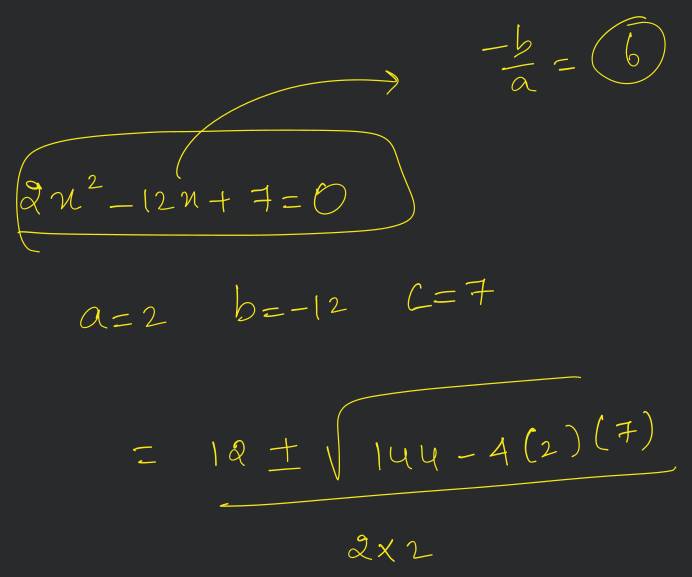 -b/a = 6
2x² - 12x + 7 = 0
a = 2 b = -12 c = 7
= 12 ± √144 - 4(2)(7)
2 × 2